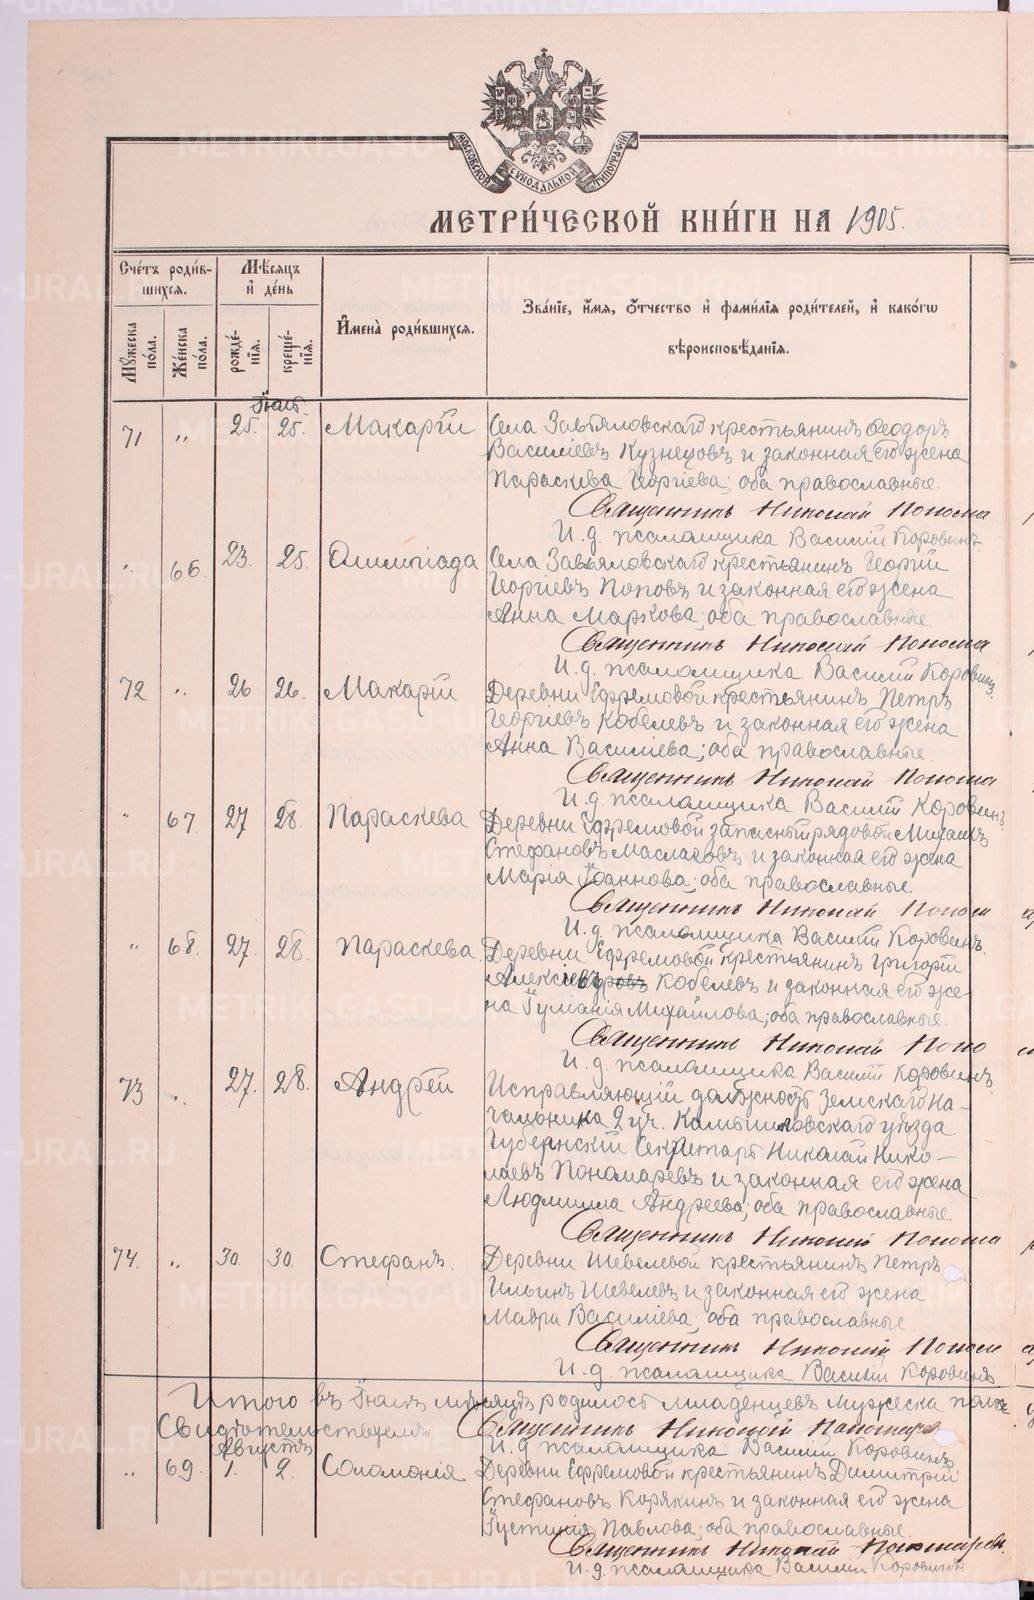 МОСКОВСКОЙ СУНОДАЛЬНОЙ ТИПОГРАФІИ
МЕТРИ́ЧЕСКОЙ КНИ́ГИ НА 1905.
Сче́тъ роди́в-
шихся.
Мѣ́сяцъ
и҆ де́нь
И҆мена̀ роди́вшихся.
Зва́нїе, и҆́мя, ѻ҆́тчество и҆ фами́лїя роди́телей, и҆ како́гѡ
вѣроисповѣ́данїя.
Мꙋ́жеска по́ла.
Же́нска по́ла.
рожде́-
нїя.
креще́-
нїя.
Іюль
71 " 25. 25. Макарій Села Завьяловскаго крестьянинъ Ѳеодоръ
Василіевъ Кузнецовъ и законная его жена
Параскева Георгіева; оба православные.
Священникъ Николай Понома
И. д. псаломщика Василій Коровинъ
" 66 23. 25. Олимпіада Села Завьяловскаго крестьянинъ Георгій
Георгіевъ Поповъ и законная его жена
Анна Маркова; оба православные.
Священникъ Николай Понома
И. д. псаломщика Василій Коровинъ.
72 " 26 26. Макарій Деревни Ефремовой крестьянинъ Петръ
Георгіевъ Кобелевъ и законная его жена
Анна Василіева; оба православные.
Священникъ Николай Понома
И. д. псаломщика Василій Коровинъ.
" 67. 27 28. Параскева Деревни Ефремовой запасный рядовой Михаилъ
Стефановъ Маслаковъ и законная его жена
Марія Іоаннова; оба православные.
Священникъ Николай Поном
И. д. псаломщика Василій Коровинъ.
" 68. 27. 28. Параскева Деревни Ефремовой крестьянинъ Григорій
Алексіевъ Кобелевъ и законная его же-
на Іуліанія Михайлова; оба православные.
Священникъ Николай Поно
И. д. псаломщика Василій Коровинъ.
73 " 27. 28. Андрей Исправляющій должность Земскаго На-
чальника 2 уч. Камышловскаго уѣзда
Губернскій Секретарь Николай Нико-
лаевъ Пономаревъ и законная его жена
Людмилла Андреева; оба православные.
Священникъ Николай Понома
74. " 30. 30. Стефанъ. Деревни Шевелевой крестьянинъ Петръ
Ильинъ Шевелевъ и законная его жена
Мавра Василіева; оба православные.
Священникъ Николай Поном
И. д. псаломщика Василій Коровинъ
Итого въ Іюлѣ мѣсяцѣ родилось младенцевъ мужеска пола
Свидѣтельствуемъ Священникъ Николай Пономарев
И. д. псаломщика Василій Коровинъ.
Августъ
" 69. 1. 2. Соломонія Деревни Ефремовой крестьянинъ Димитрій
Стефановъ Корякинъ и законная его жена
Іустинія Павлова; оба православные.
Священникъ Николай Пономарев.
И. д. псаломщика Василій Коровинъ
METRIKI.GASO-URAL.RU